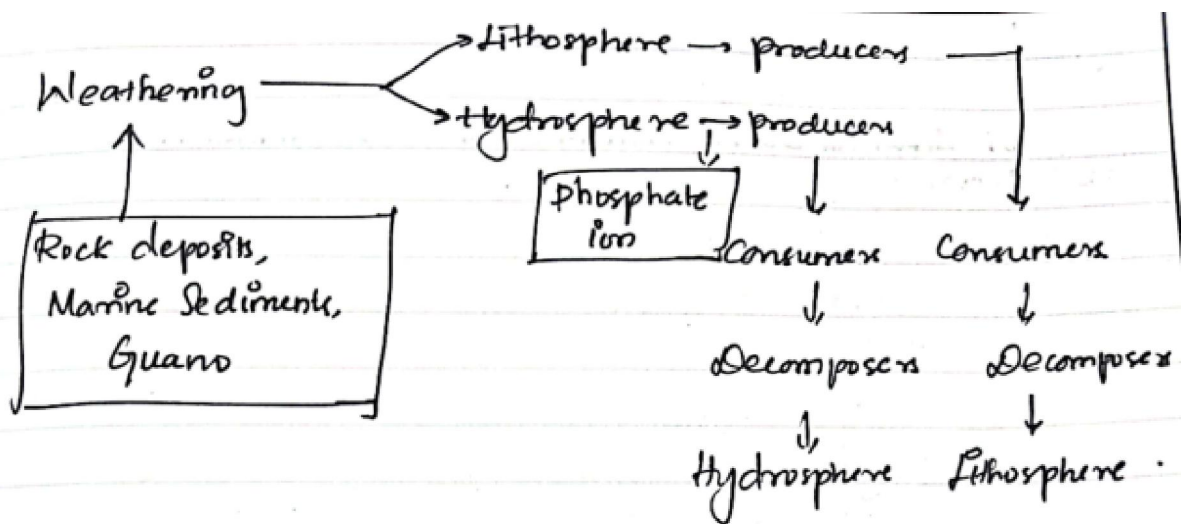 Lithosphere → producers
Weathering
Hydrosphere → producers
Phosphate
ion
Rock deposits,
Marine Sediments,
Guano
Consumers Consumers
Decomposers Decomposers
Hydrosphere Lithosphere .